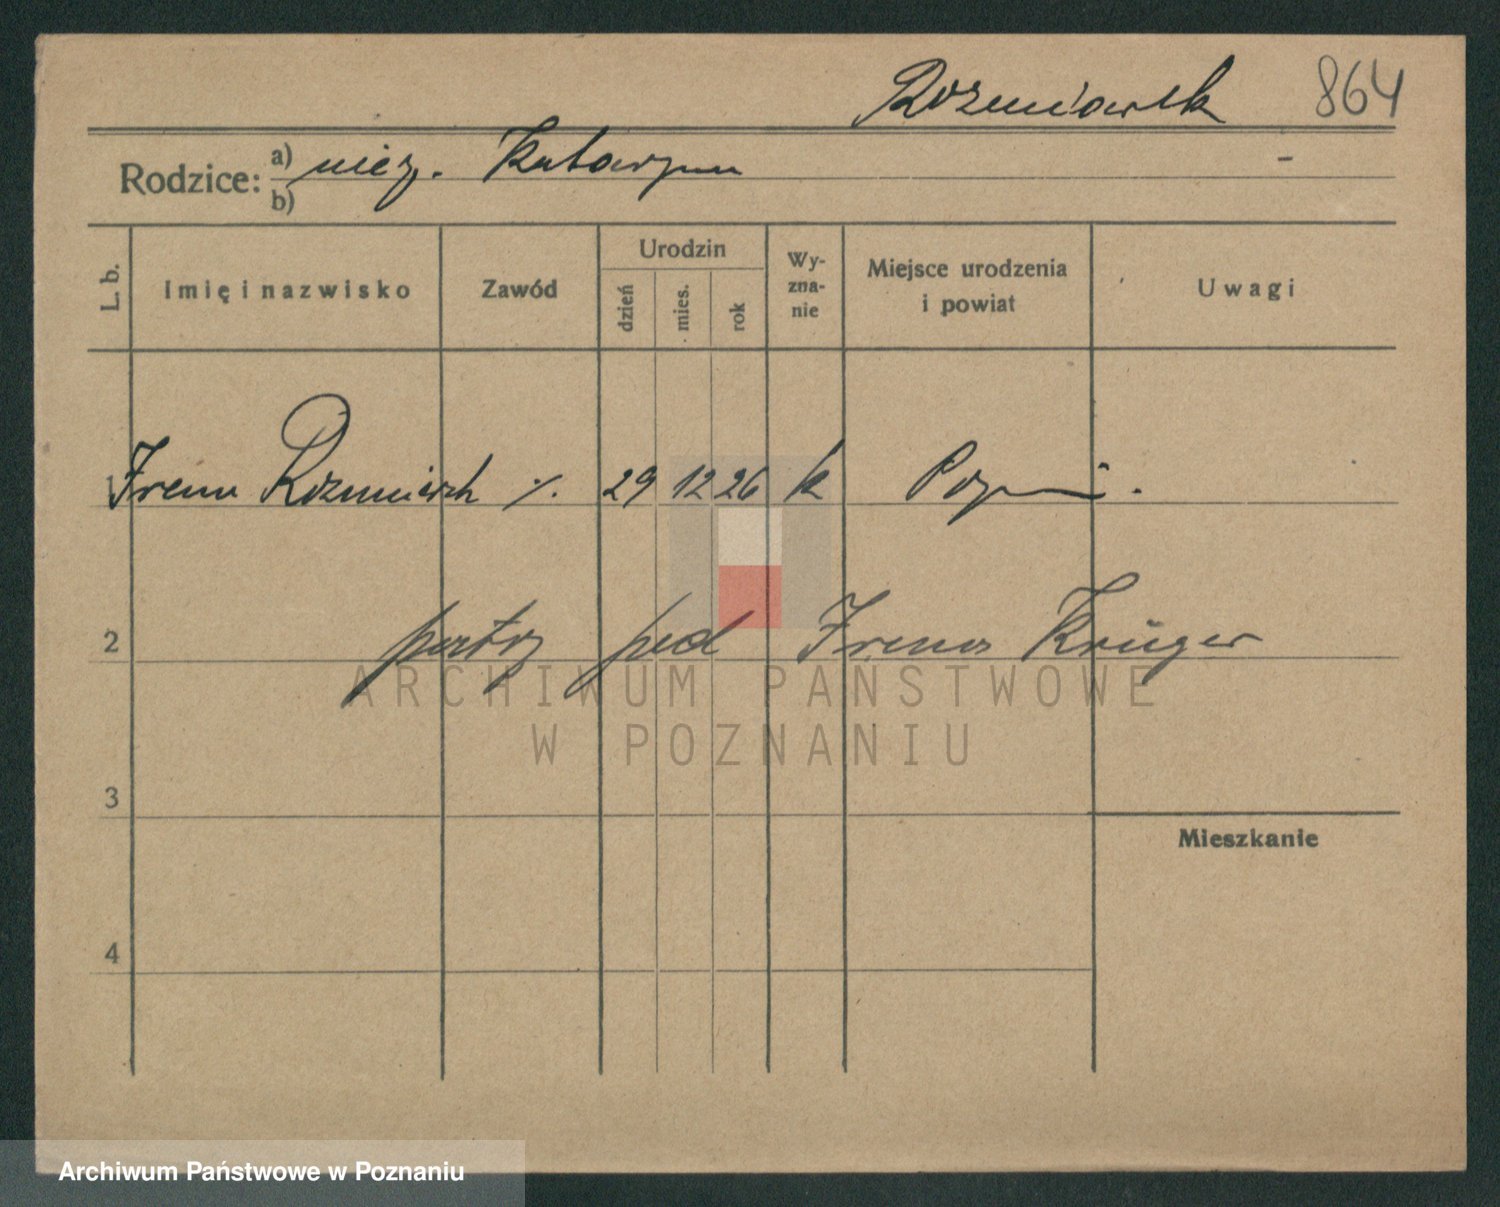 Rozmiarek 864
Rodzice: a) niez. Katarzyna -
b)
L. b. Imię i nazwisko Zawód Urodzin dzień mies. rok Wy-zna-nie Miejsce urodzenia i powiat Uwagi
1 Irena Rozmiarek ./. 29 12 26 k Poznań.
2 patrz pod Irena Krüger
ARCHIWUM PAŃSTWOWE
W POZNANIU
3
Mieszkanie
4
Archiwum Państwowe w Poznaniu